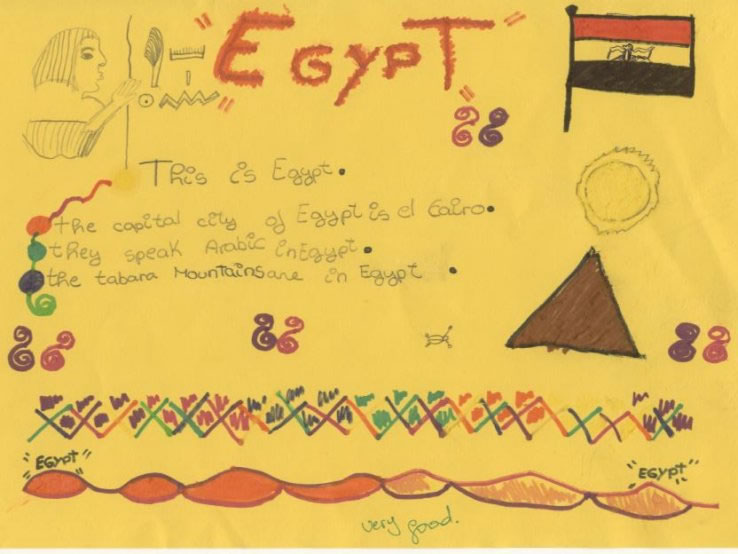 "EGypT"
This is Egypt.
the capital city of Egypt is el Cairo.
they speak Arabic in Egypt.
the tabara Mountains are in Egypt.
"EGYPT"
"EGYPT"
very good.